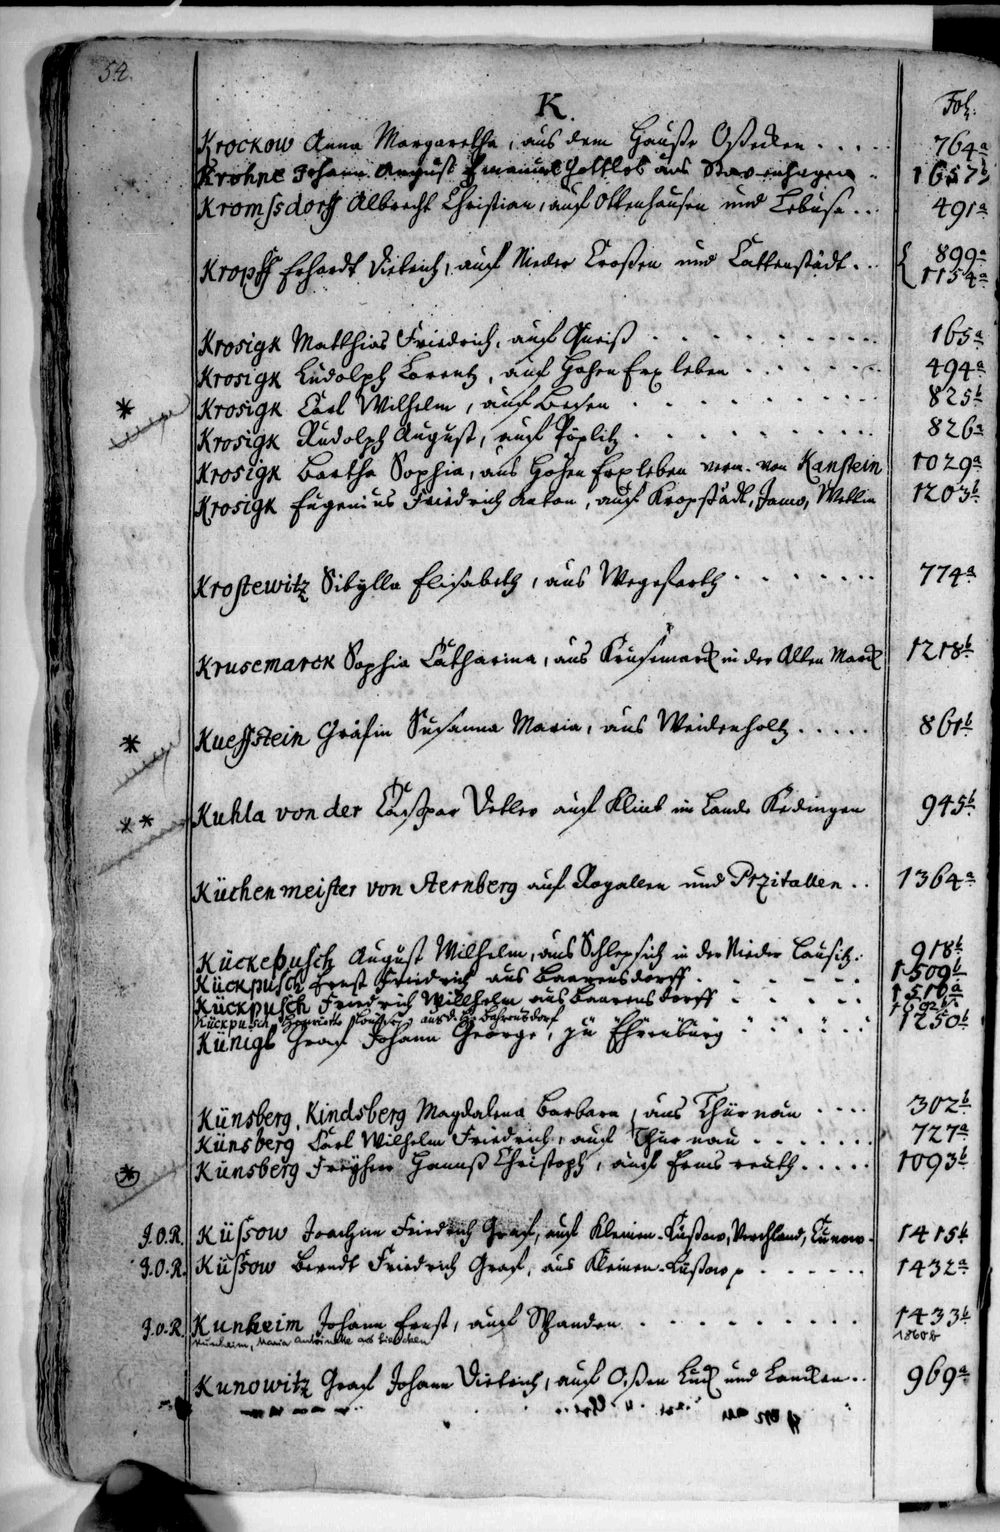 54.
K.
Fol:
Krockow Anna Margaretha, aus dem Hauße Oßecken . . . . 764a
Krohne Johann August Emanuel Gottlob aus Stavenhagen . 1657b
Kromssdorff Albrecht Christian, auf Ottenhausen und Lebusa . . 491a
Kropff Erhardt Dietrich, auf Nieder Croßen und Cattenstädt . . 899a
1154a
Krosigk Matthias Friedrich, auf Gneiß . . . . . . . . . . 165a
Krosigk Ludolph Lorentz, auf Hohen Erxleben . . . . . . 494a
* Krosigk Carl Wilhelm, auf Besen . . . . . . . . . . 825b
Krosigk Rudolph August, auf Pöplitz . . . . . . . . . 826a
Krosigk Bartha Sophia, aus Hohen Erxleben verm. von Kanstein 1029a
Krosigk Eugenius Friedrich Anton, auf Kropstädt, Jamo, Wettin 1203b
Krostewitz Sibylla Elisabeth, aus Wegefarth . . . . . . . 774a
Krusemarck Sophia Catharina, aus Krusemarck in der Alten Marck 1218b
* Kueffstein Gräfin Susanna Maria, aus Weidenholtz . . . . . 861b
** Kuhla von der Caspar Detlev auf Klint im Lande Kedingen 945b
Küchenmeister von Sternberg auf Rogallen und Przitallen . . 1364a
Kückepusch August Wilhelm, aus Schlepsich in der Nieder Lausitz. 918b
Kückpusch Ernst Friedrich aus Baarensdorff . . . . . . 1509b
Kückpusch Friedrich Willhelm aus Baarensdorff . . . . . 1510a
Kückpusch Henriette aus d. H. Bahrensdorf
Künigl Graf Johann George, zu Ehrenburg . . . . . . 1250b
Künsberg, Kindsberg Magdalena Barbara, aus Thürnau . . . . 302b
Künsberg Carl Wilhelm Friedrich, auf Thurnau . . . . . . 727a
* Künsberg Freyherr Hannß Christoph, auf Ermsreuth . . . . . 1093b
J.O.R. Küssow Joachim Friedrich Graf, auf Kleinen-Küßow, Verchland, Cunow . 1415b
J.O.R. Küssow Berndt Friedrich Graf, aus Kleinen-Küßow p . . . . . . 1432a
J.O.R. Kunheim Johann Ernst, auf Spanden . . . . . . . . . . 1433b
Kunheim, Maria Antoinette aus 1860b
Kunowitz Graf Johann Dietrich, auf und . . 969a